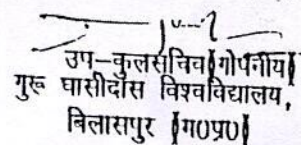 उप-कुलसचिव(गोपनीय)
गुरू घासीदास विश्वविद्यालय,
बिलासपुर (म0प्र0)